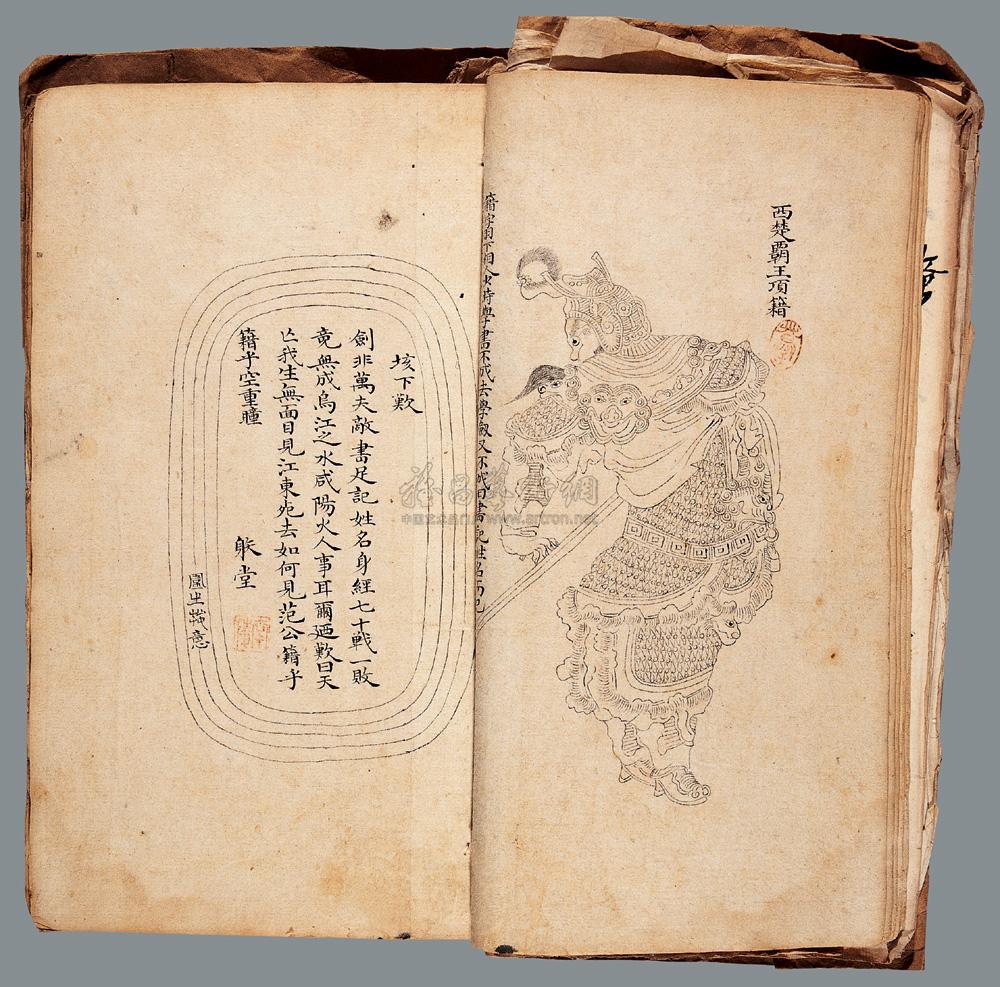 西楚霸王項籍
籍字羽下相人少時學書不成去學劍又不成曰書記姓名而已
垓下歎
劍非萬夫敵書足記姓名身經七十戰一敗
竟無成烏江之水咸陽火人事耳爾迺歎曰天
亾我生無面目見江東死去如何見范公籍乎
籍乎空重瞳
躲堂
中国艺术品
www.artron.net